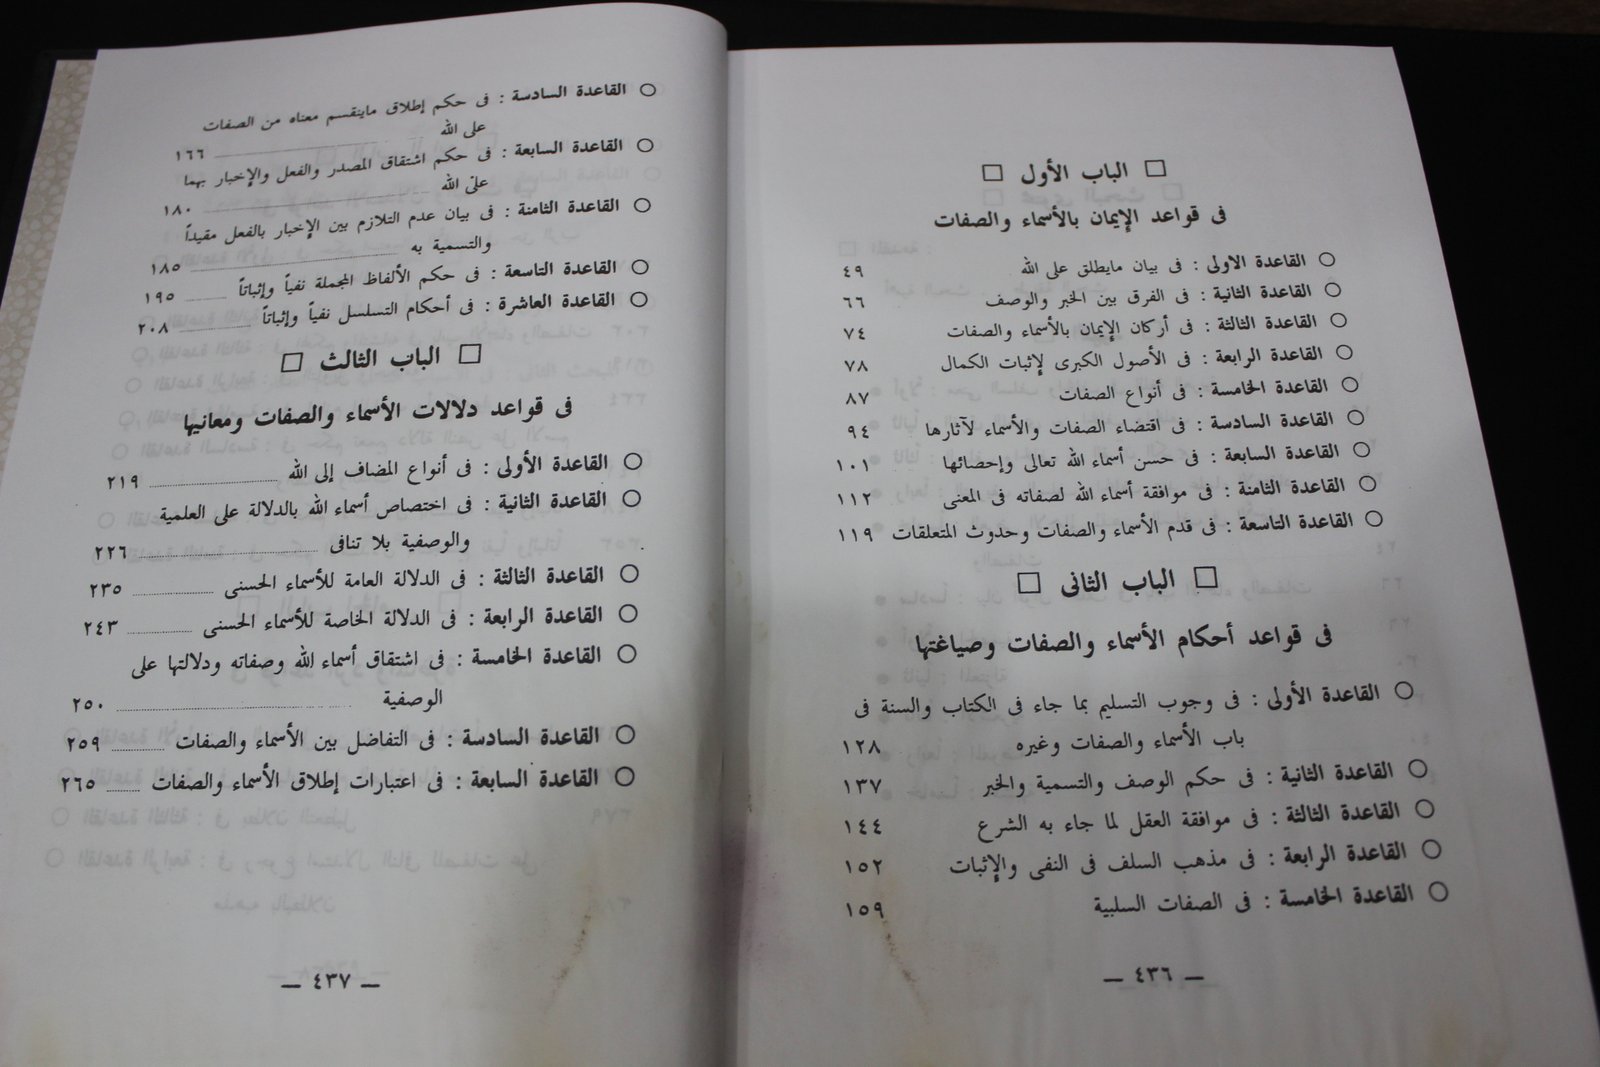 □ الباب الأول □
فى قواعد الإيمان بالأسماء والصفات
○ القاعدة الاولى : فى بيان مايطلق على الله ٤٩
○ القاعدة الثانية : فى الفرق بين الخبر والوصف ٦٦
○ القاعدة الثالثة : فى أركان الإيمان بالأسماء والصفات ٧٤
○ القاعدة الرابعة : فى الأصول الكبرى لإثبات الكمال ٧٨
○ القاعدة الخامسة : فى أنواع الصفات ٨٧
○ القاعدة السادسة : فى اقتضاء الصفات والأسماء لآثارها ٩٤
○ القاعدة السابعة : فى حسن أسماء الله تعالى وإحصائها ١٠١
○ القاعدة الثامنة : فى موافقة أسماء الله لصفاته فى المعنى ١١٢
○ القاعدة التاسعة : فى قدم الأسماء والصفات وحدوث المتعلقات ١١٩
□ الباب الثانى □
فى قواعد أحكام الأسماء والصفات وصياغتها
○ القاعدة الأولى : فى وجوب التسليم بما جاء فى الكتاب والسنة فى
باب الأسماء والصفات وغيره ١٢٨
○ القاعدة الثانية : فى حكم الوصف والتسمية والخبر ١٣٧
○ القاعدة الثالثة : فى موافقة العقل لما جاء به الشرع ١٤٤
○ القاعدة الرابعة : فى مذهب السلف فى النفى والإثبات ١٥٢
○ القاعدة الخامسة : فى الصفات السلبية ١٥٩
— ٤٣٦ —
○ القاعدة السادسة : فى حكم إطلاق ماينقسم معناه من الصفات
على الله ١٦٦
○ القاعدة السابعة : فى حكم اشتقاق المصدر والفعل والإخبار بهما
على الله ١٨٠
○ القاعدة الثامنة : فى بيان عدم التلازم بين الإخبار بالفعل مقيداً
والتسمية به ١٨٥
○ القاعدة التاسعة : فى حكم الألفاظ المجملة نفياً وإثباتاً ١٩٥
○ القاعدة العاشرة : فى أحكام التسلسل نفياً وإثباتاً ٢٠٨
□ الباب الثالث □
فى قواعد دلالات الأسماء والصفات ومعانيها
○ القاعدة الأولى : فى أنواع المضاف إلى الله ٢١٩
○ القاعدة الثانية : فى اختصاص أسماء الله بالدلالة على العلمية
والوصفية بلا تنافى ٢٢٦
○ القاعدة الثالثة : فى الدلالة العامة للأسماء الحسنى ٢٣٥
○ القاعدة الرابعة : فى الدلالة الخاصة للأسماء الحسنى ٢٤٣
○ القاعدة الخامسة : فى اشتقاق أسماء الله وصفاته ودلالتها على
الوصفية ٢٥٠
○ القاعدة السادسة : فى التفاضل بين الأسماء والصفات ٢٥٩
○ القاعدة السابعة : فى اعتبارات إطلاق الأسماء والصفات ٢٦٥
— ٤٣٧ —